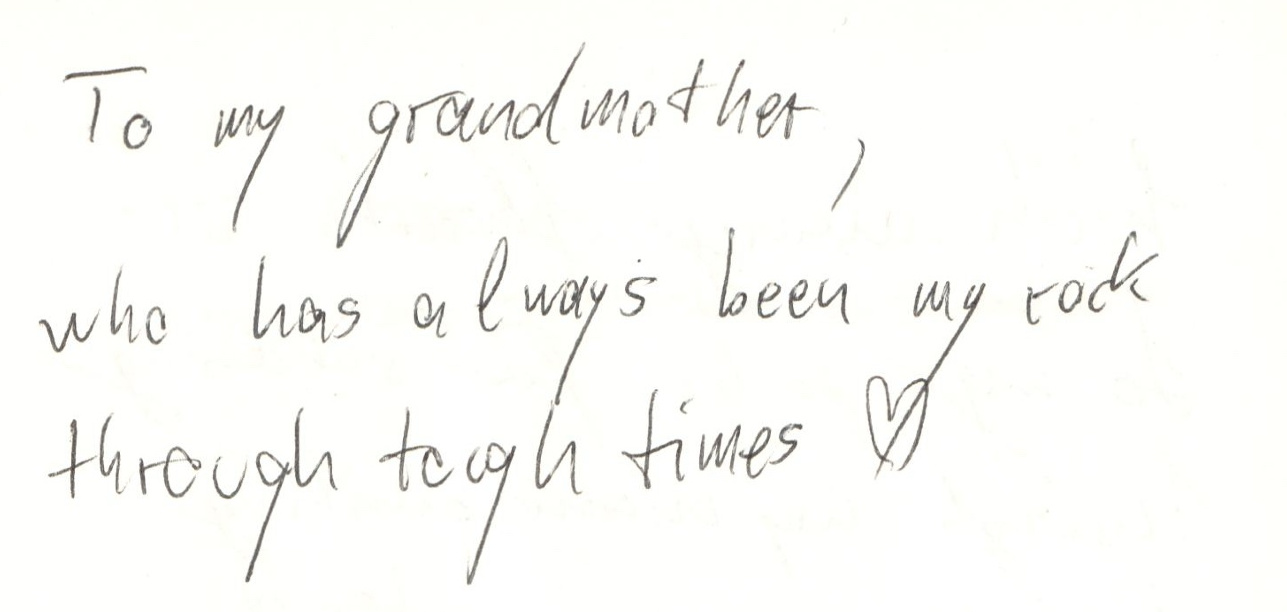 To my grandmother,
who has always been my rock
through tough times ♡